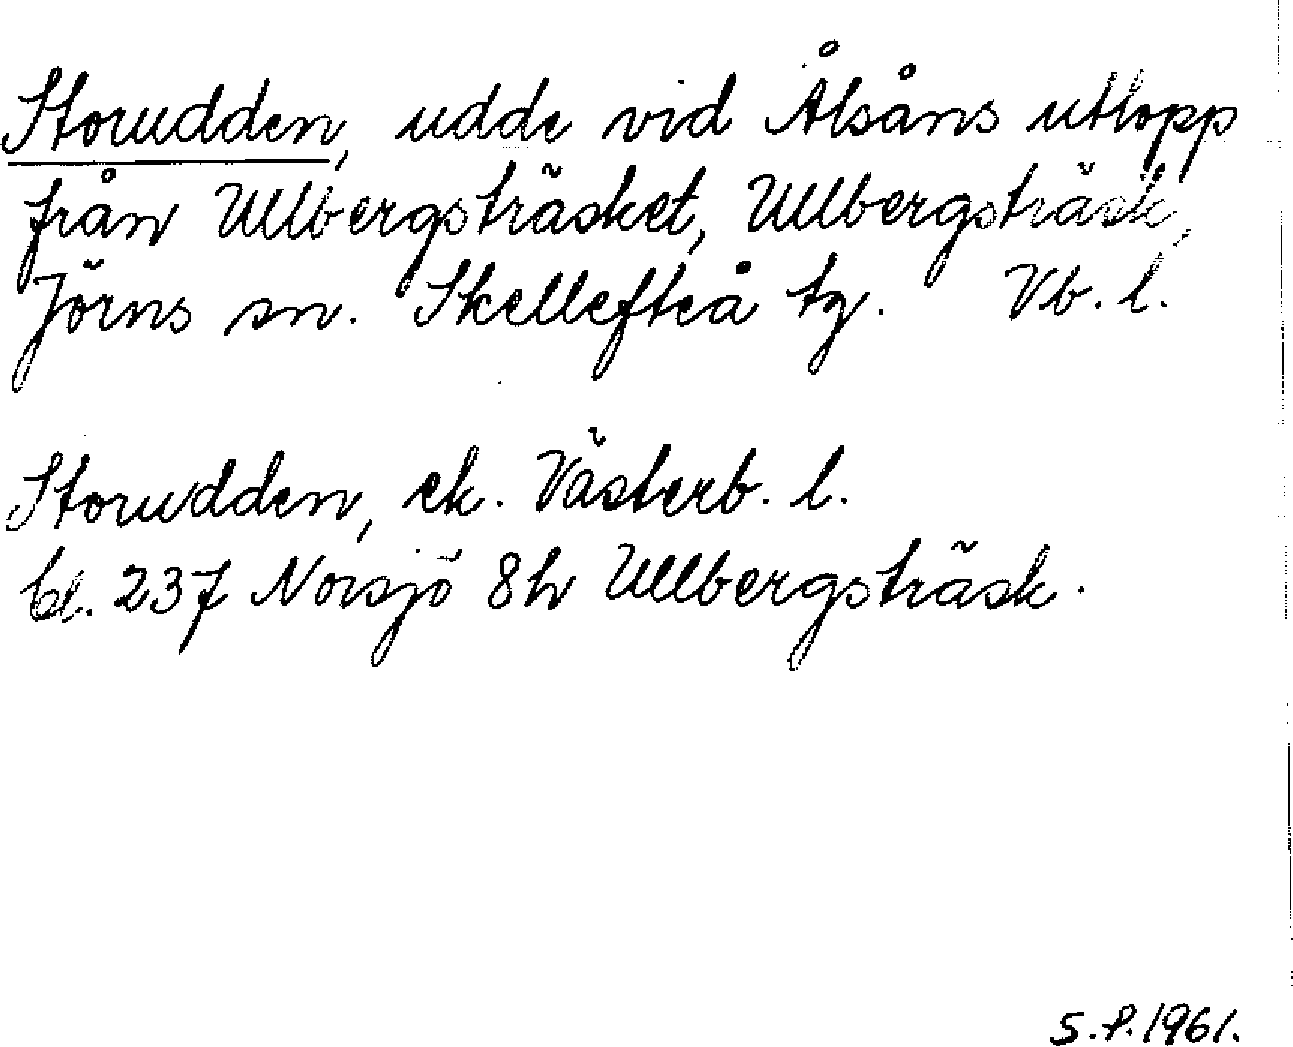 Storudden, udde vid Ålsåns utlopp
från Ullbergsträsket, Ullbergsträsk,
Jörns sn. Skellefteå tg. Vb. l.
Storudden, ek. Västerb. l.
bl. 237 Norsjö 8h Ullbergsträsk.
S.P. 1961.